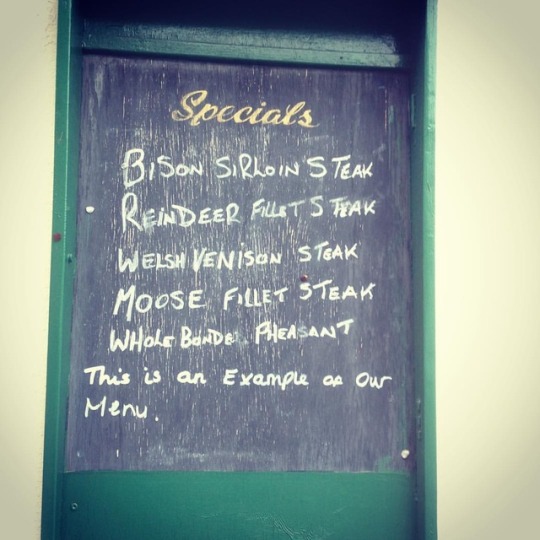 Specials
BISON SIRLOIN STEAK
REINDEER FILLET STEAK
WELSH VENISON STEAK
MOOSE FILLET STEAK
WHOLE PHEASANT
This is an Example of Our
Menu.